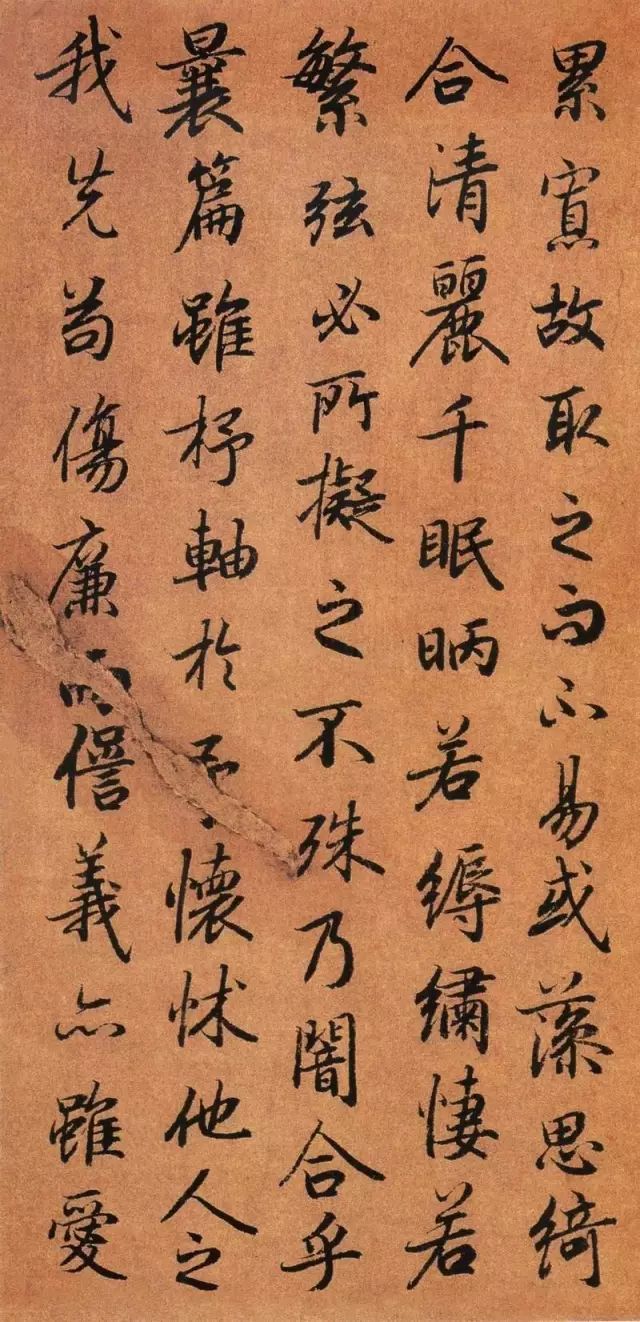 累寡故取之而不易或藻思綺
合清麗千眠昞若縟繡悽若
繁弦必所擬之不殊乃闇合乎
曩篇雖杼軸於予懷怵他人之
我先苟傷廉而諐義亦雖愛